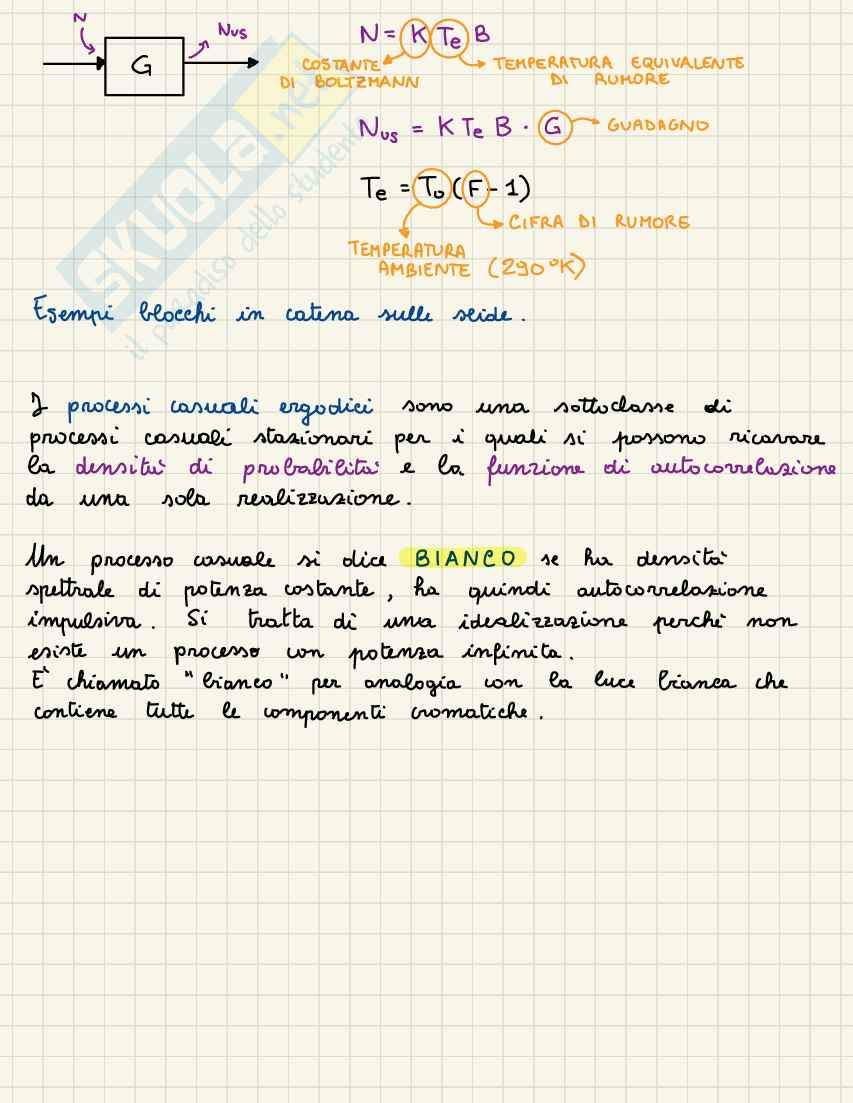 N
N_us
G
N = K T_e B
COSTANTE DI BOLTZMANN
TEMPERATURA EQUIVALENTE DI RUMORE
N_us = K T_e B · G
GUADAGNO
T_e = T_0 (F - 1)
CIFRA DI RUMORE
TEMPERATURA AMBIENTE (290 °K)
SKUOLA.net
il paradiso dello studente
Esempi blocchi in catena sulle slide.
I processi casuali ergodici sono una sottoclasse di
processi casuali stazionari per i quali si possono ricavare
la densità di probabilità e la funzione di autocorrelazione
da una sola realizzazione.
Un processo casuale si dice BIANCO se ha densità
spettrale di potenza costante, ha quindi autocorrelazione
impulsiva. Si tratta di una idealizzazione perchè non
esiste un processo con potenza infinita.
E' chiamato "bianco" per analogia con la luce bianca che
contiene tutte le componenti cromatiche.